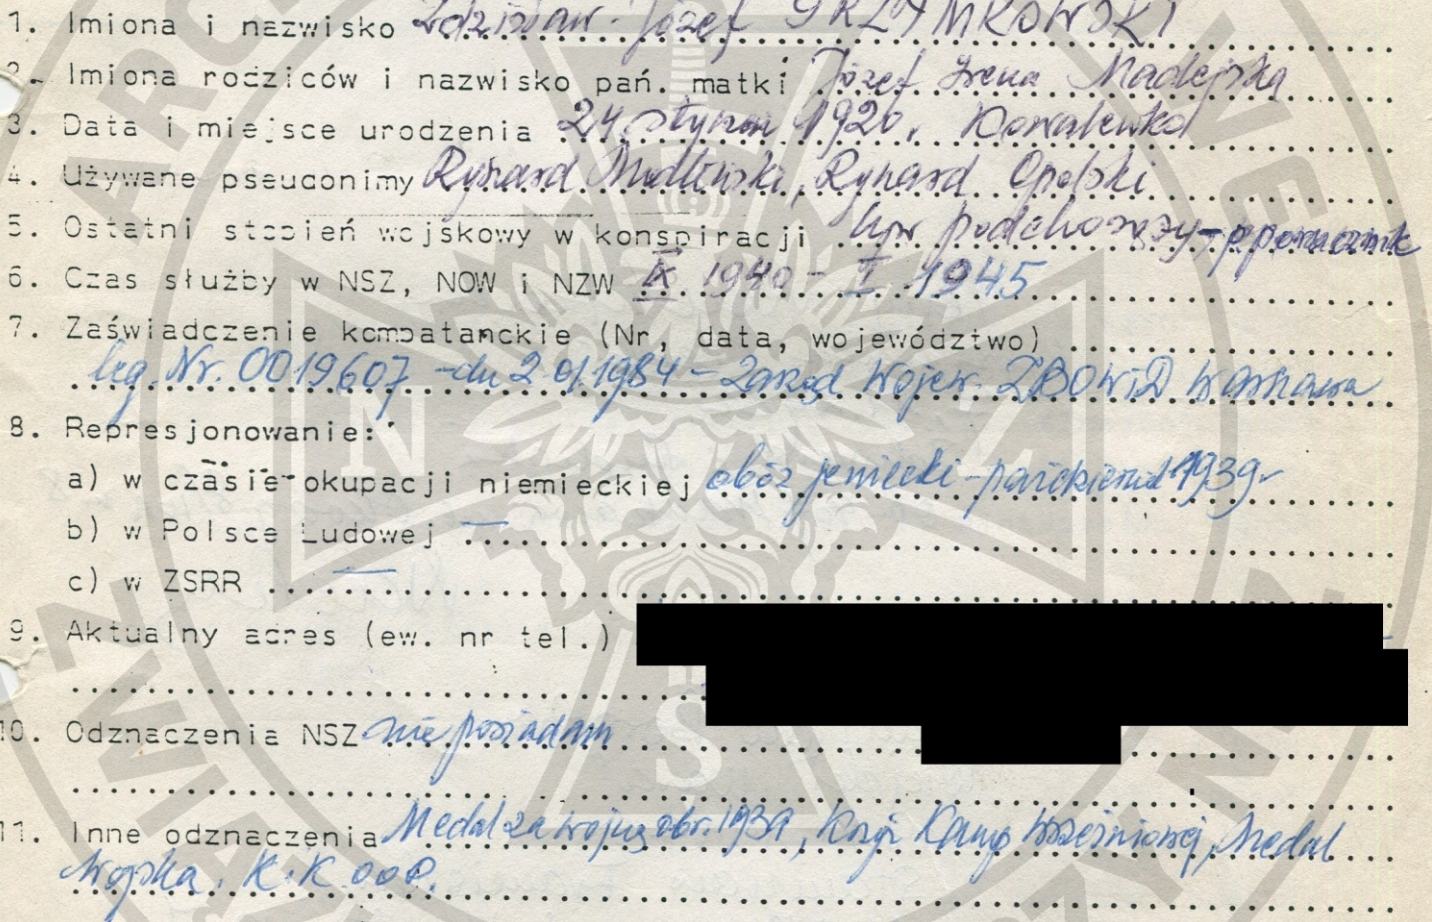 1. Imiona i nazwisko Zdzisław Józef GRZYMKOWSKI
2. Imiona rodziców i nazwisko pań. matki Józef Irena Madejska
3. Data i miejsce urodzenia 24 styczn 1920. Kowalewko
4. Używane pseudonimy Ryszard Modlewski, Ryszard Opolski
5. Ostatni stopień wojskowy w konspiracji kpr podchorąży - pporucznik
6. Czas służby w NSZ, NOW i NZW IX 1940 - I 1945
7. Zaświadczenie kombatanckie (Nr, data, województwo)
leg. Nr. 0019607 - dn 2 01.1984 - Zarząd Wojew. ZBOWiD Warszawa
8. Represjonowanie:
a) w czasie okupacji niemieckiej obóz jeniecki - październik 1939r
b) w Polsce Ludowej —
c) w ZSRR —
9. Aktualny adres (ew. nr tel.)
10. Odznaczenia NSZ nie posiadam
11. Inne odznaczenia Medal za wojnę obr. 1939, Krzyż Kamp Wrześniowej, Medal
Wojska. K.K OOP.